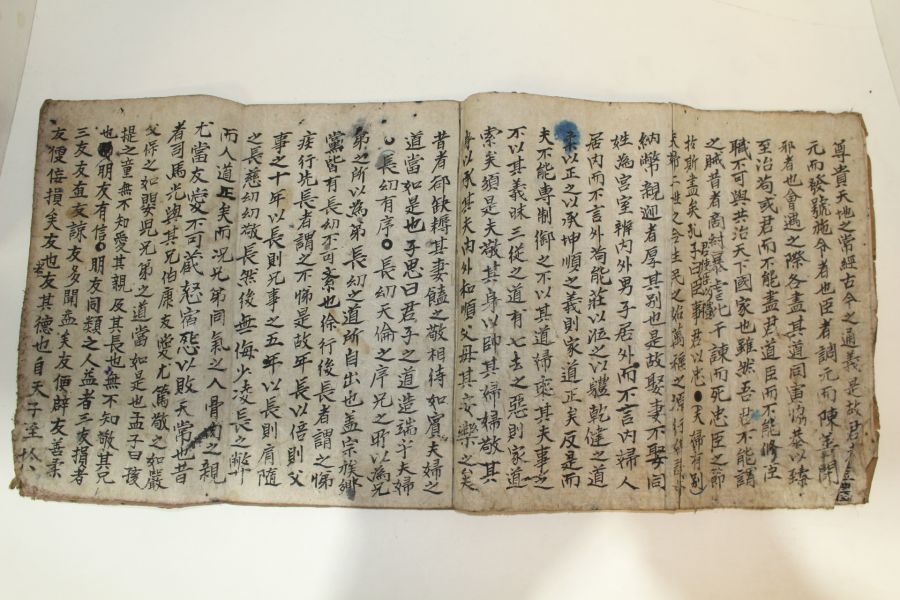 尊貴天地之常經古今之通義是故君
元而發號施令者也臣者調元而陳善閉
邪者也會遇之際各盡其道同寅協恭以臻
至治苟或君而不能盡君道臣而不能修臣
職不可與共治天下國家也雖然吾君不能謂
之賊昔者商紂暴虐比干諫而死忠臣之節
於斯盡矣孔子曰臣事君以忠●夫婦有別
夫婦二姓之合生民之始萬福之原行媒議
納幣親迎者厚其別也是故娶妻不娶同
姓為宮室辨內外男子居外而不言內婦人
居內而不言外苟能莊以涖之以體乾健之道
柔以正之以承坤順之義則家道正矣反是而
夫不能專制御之不以其道婦乘其夫事之
不以其義昧三從之道有七去之惡則家道
索矣須是夫敬其身以帥其婦婦敬其
身以承其夫內外和順父母其安樂之矣
昔者郤缺耨其妻饁之敬相待如賓夫婦之
道當如是也子思曰君子之道造端乎夫婦
●(長幼有序●長幼天倫之序兄之所以為兄
弟之所以為弟長幼之道所自出也蓋宗族鄉
黨皆有長幼不可紊也徐行後長者謂之悌
疾行先長者謂之不悌是故年長以倍則父
事之十年以長則兄事之五年以長則肩隨
之長慈幼幼敬長然後無侮少凌長之弊
而人道正矣而況兄弟同氣之人骨肉之親
尤當友愛不可藏怒宿怨以敗天常也昔
者司馬光與其兄伯康友愛尤篤敬之如嚴
父保之如嬰兒兄弟之道當如是也孟子曰孩
提之童無不知愛其親及其長也無不知敬其兄
也●朋友有信●朋友同類之人益者三友損者
三友友直友諒友多聞益矣友便辟友善柔
友便佞損矣友也友其德也自天子至於